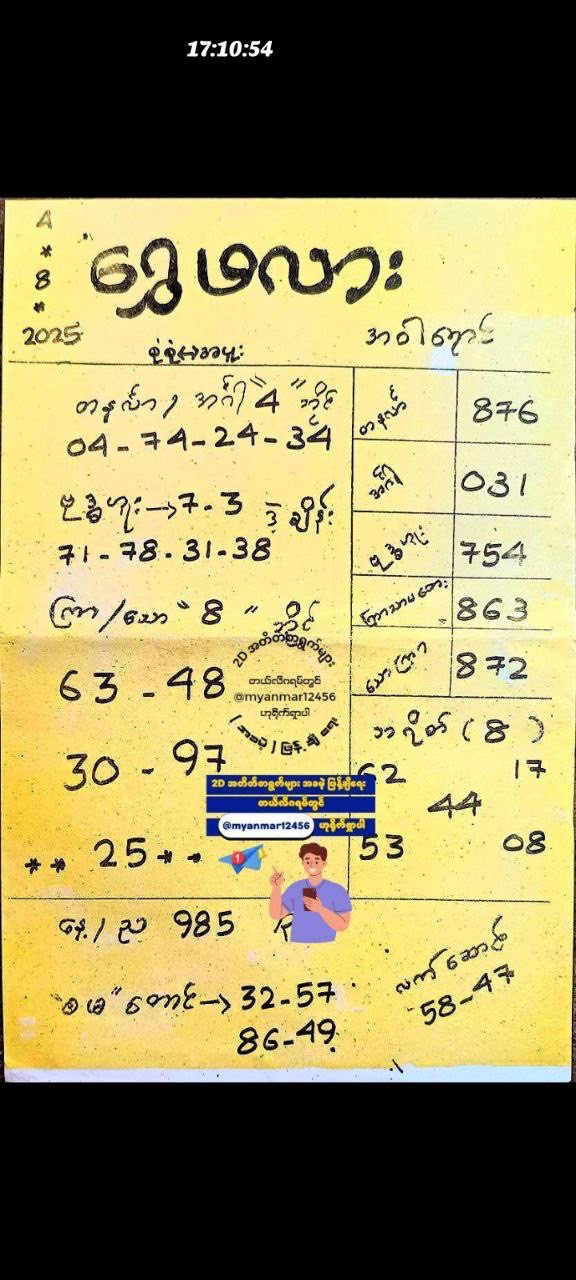 17:10:54
4
*
8
*
2025
ရွှေဖလား
စုံစုံ<->အမှုး
အဝါရောင်
တနင်္လာ / အင်္ဂါ "4" ဘိုင်
04-74-24-34
ဗုဒ္ဓဟူး → 7-3 ဒဲ့ ချိန်း
71-78-31-38
ကြာ / သော "8" ဘိုင်
63 - 48
30 - 97
** 25 **
တနင်္လာ 876
အင်္ဂါ 031
ဗုဒ္ဓဟူး 754
ကြာသာပတေး 863
သောကြာ 872
ဘရိတ် (8)
62 17
44
53 08
2D အတိတ်စာရွက်များ
တယ်လီဂရမ်တွင်
@myanmar12456
ဟုရိုက်ရှာပါ
(အခမဲ့) ဖြန့်ချိရေး
2D အတိတ်စာရွက်များ အခမဲ့ ဖြန့်ချိရေး
တယ်လီဂရမ်တွင်
@myanmar12456 ဟုရိုက်ရှာပါ
1
နေ့/ည 985 R
"စမ" တောင် → 32-57
86-49
လက်ဆောင်
58-47